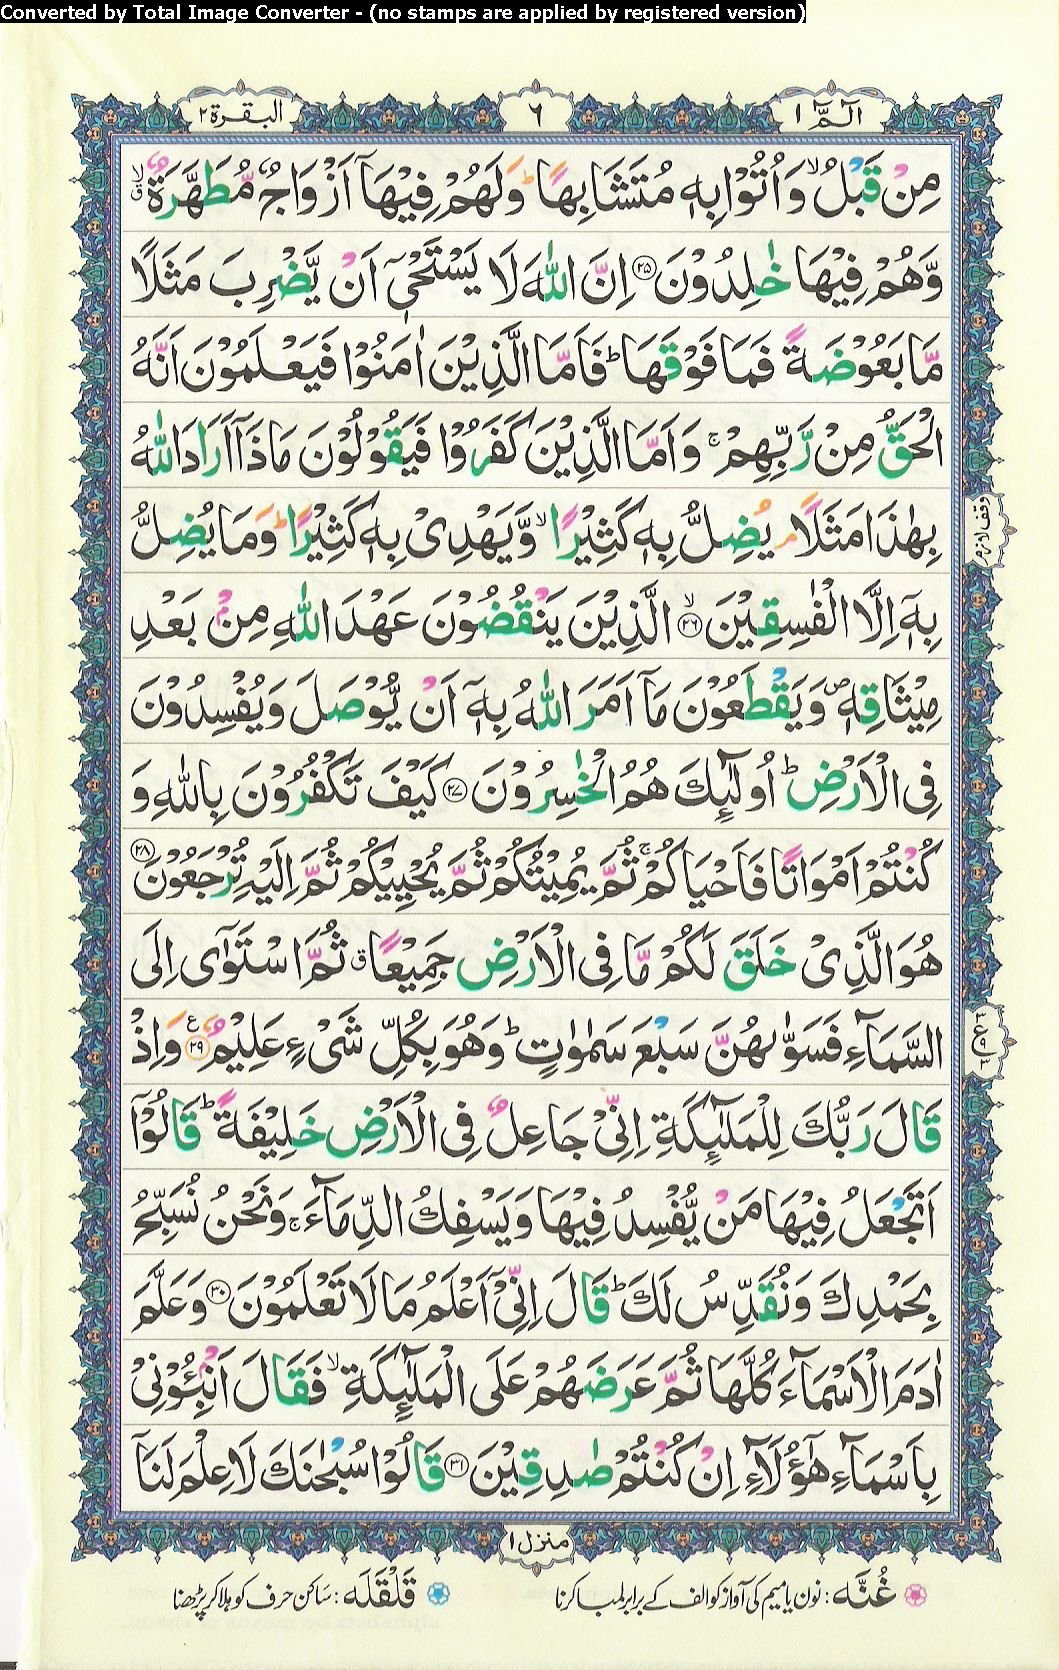 Converted by Total Image Converter - (no stamps are applied by registered version)
الٓمّٓ ١
٦
البقرة ٢
مِنْ قَبْلُ ۙ وَاُتُوْا بِهٖ مُتَشَابِهًا ؕ وَلَهُمْ فِيْهَاۤ اَزْوَاجٌ مُّطَهَّرَةٌ ۙۗ
وَّهُمْ فِيْهَا خٰلِدُوْنَ ﴿۲۵﴾ اِنَّ اللّٰهَ لَا يَسْتَحْیٖۤ اَنْ يَّضْرِبَ مَثَلًا
مَّا بَعُوْضَةً فَمَا فَوْقَهَا ؕ فَاَمَّا الَّذِيْنَ اٰمَنُوْا فَيَعْلَمُوْنَ اَنَّهُ
الْحَقُّ مِنْ رَّبِّهِمْ ۚ وَاَمَّا الَّذِيْنَ كَفَرُوْا فَيَقُوْلُوْنَ مَاذَاۤ اَرَادَ اللّٰهُ
بِهٰذَا مَثَلًا ۘ يُضِلُّ بِهٖ كَثِيْرًا ۙ وَّيَهْدِیْ بِهٖ كَثِيْرًا ؕ وَمَا يُضِلُّ
وقف لازم
بِهٖۤ اِلَّا الْفٰسِقِيْنَ ﴿۲۶﴾ ۙ الَّذِيْنَ يَنْقُضُوْنَ عَهْدَ اللّٰهِ مِنْۢ بَعْدِ
مِيْثَاقِهٖ ۪ وَيَقْطَعُوْنَ مَاۤ اَمَرَ اللّٰهُ بِهٖۤ اَنْ يُّوْصَلَ وَيُفْسِدُوْنَ
فِی الْاَرْضِ ؕ اُولٰٓئِكَ هُمُ الْخٰسِرُوْنَ ﴿۲۷﴾ كَيْفَ تَكْفُرُوْنَ بِاللّٰهِ وَ
كُنْتُمْ اَمْوَاتًا فَاَحْيَاكُمْ ۚ ثُمَّ يُمِيْتُكُمْ ثُمَّ يُحْيِيْكُمْ ثُمَّ اِلَيْهِ تُرْجَعُوْنَ ﴿۲۸﴾
هُوَ الَّذِیْ خَلَقَ لَكُمْ مَّا فِی الْاَرْضِ جَمِيْعًا ۗ ثُمَّ اسْتَوٰۤی اِلَی
السَّمَآءِ فَسَوّٰىهُنَّ سَبْعَ سَمٰوٰتٍ ؕ وَهُوَ بِكُلِّ شَیْءٍ عَلِيْمٌ ﴿۲۹﴾ ع وَاِذْ
٣ ع ٩ ٣
قَالَ رَبُّكَ لِلْمَلٰٓئِكَةِ اِنِّیْ جَاعِلٌ فِی الْاَرْضِ خَلِيْفَةً ؕ قَالُوْۤا
اَتَجْعَلُ فِيْهَا مَنْ يُّفْسِدُ فِيْهَا وَيَسْفِكُ الدِّمَآءَ ۚ وَنَحْنُ نُسَبِّحُ
بِحَمْدِكَ وَنُقَدِّسُ لَكَ ؕ قَالَ اِنِّیْۤ اَعْلَمُ مَا لَا تَعْلَمُوْنَ ﴿۳۰﴾ وَعَلَّمَ
اٰدَمَ الْاَسْمَآءَ كُلَّهَا ثُمَّ عَرَضَهُمْ عَلَی الْمَلٰٓئِكَةِ ۙ فَقَالَ اَنْۢبِئُوْنِیْ
بِاَسْمَآءِ هٰۤؤُلَآءِ اِنْ كُنْتُمْ صٰدِقِيْنَ ﴿۳۱﴾ قَالُوْا سُبْحٰنَكَ لَا عِلْمَ لَنَاۤ
منزل ١
غُنَّه: نون یا میم کی آواز کو الف کے برابر لمبا کرنا
قَلْقَلَه: ساکن حرف کو ہلا کر پڑھنا